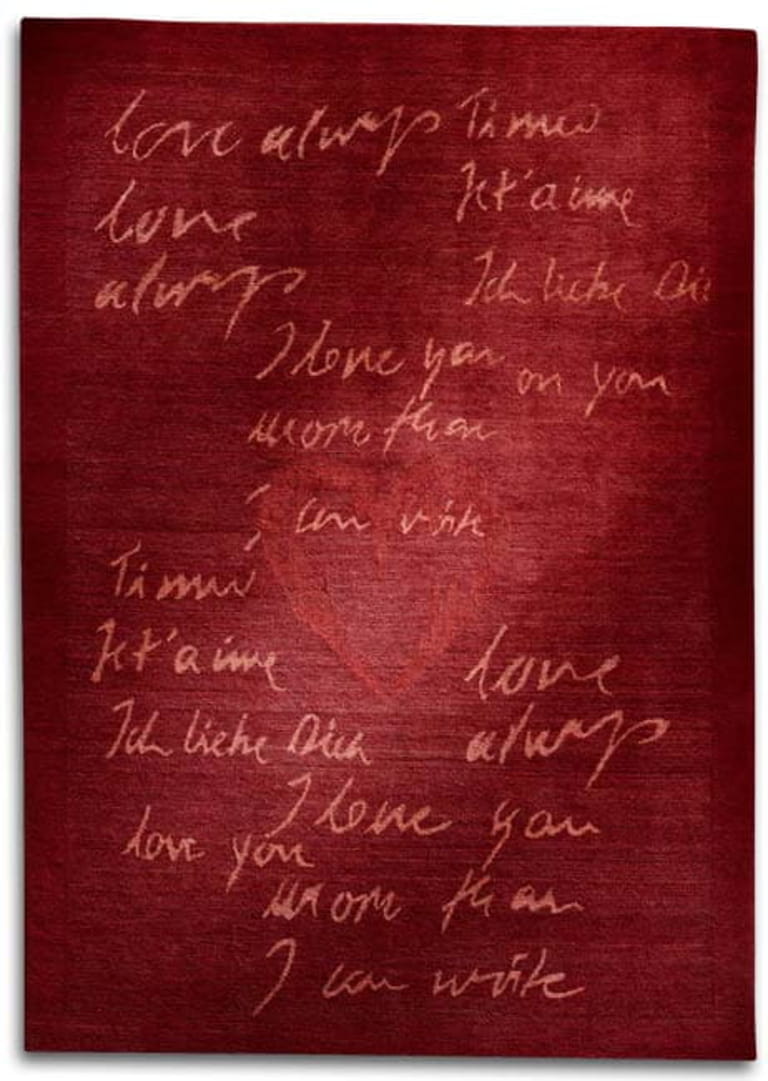 love always Ti amo
Je t'aime
love
always
Ich liebe Di
I love you on you
more than
I can write
Ti amo
Je t'aime
love
Ich liebe Dich
always
I love you
love you
more than
I can write